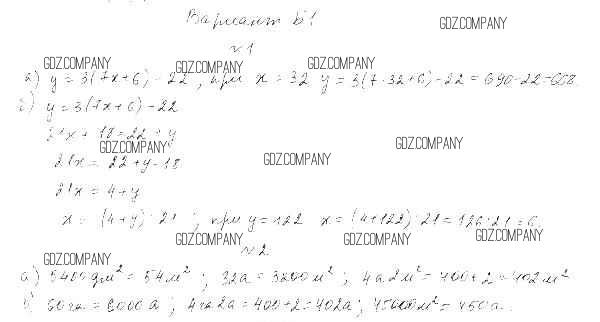 Вариант Б1
GDZ.COMPANY
№1
GDZ.COMPANY GDZ.COMPANY GDZ.COMPANY
а) y = 3(7x+6) - 22, при x = 32 y = 3(7·32+6) - 22 = 690-22=668.
б) y = 3(7x+6) - 22
21x + 18 = 22 + y
GDZ.COMPANY GDZ.COMPANY
21x = 22 + y - 18
GDZ.COMPANY
21x = 4 + y
x = (4+y) : 21 ; при y = 122 x = (4+122) : 21 = 126 : 21 = 6
GDZ.COMPANY GDZ.COMPANY GDZ.COMPANY
№2
GDZ.COMPANY
а) 5400дм² = 54м² ; 32а = 3200м² ; 4а 2м² = 400+2 = 402м²
б) 60га = 6000а ; 4га 2а = 400+2 = 402а ; 45000м² = 450а.